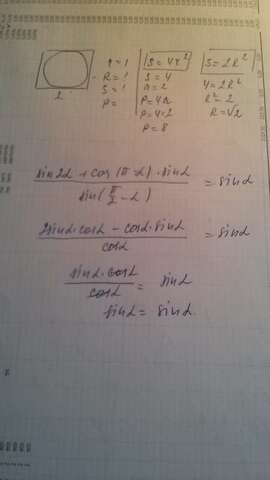 2
r = 1
R = !
S = !
P =
S = 4r²
S = 4
a = 2
P = 4a
P = 4·2
P = 8
S = 2R²
4 = 2R²
R² = 2
R = √2
(sin2α + cos(π-α)·sinα) / sin(π/2 - α) = sinα
(2sinα·cosα - cosα·sinα) / cosα = sinα
(sinα·cosα) / cosα = sinα
sinα = sinα.